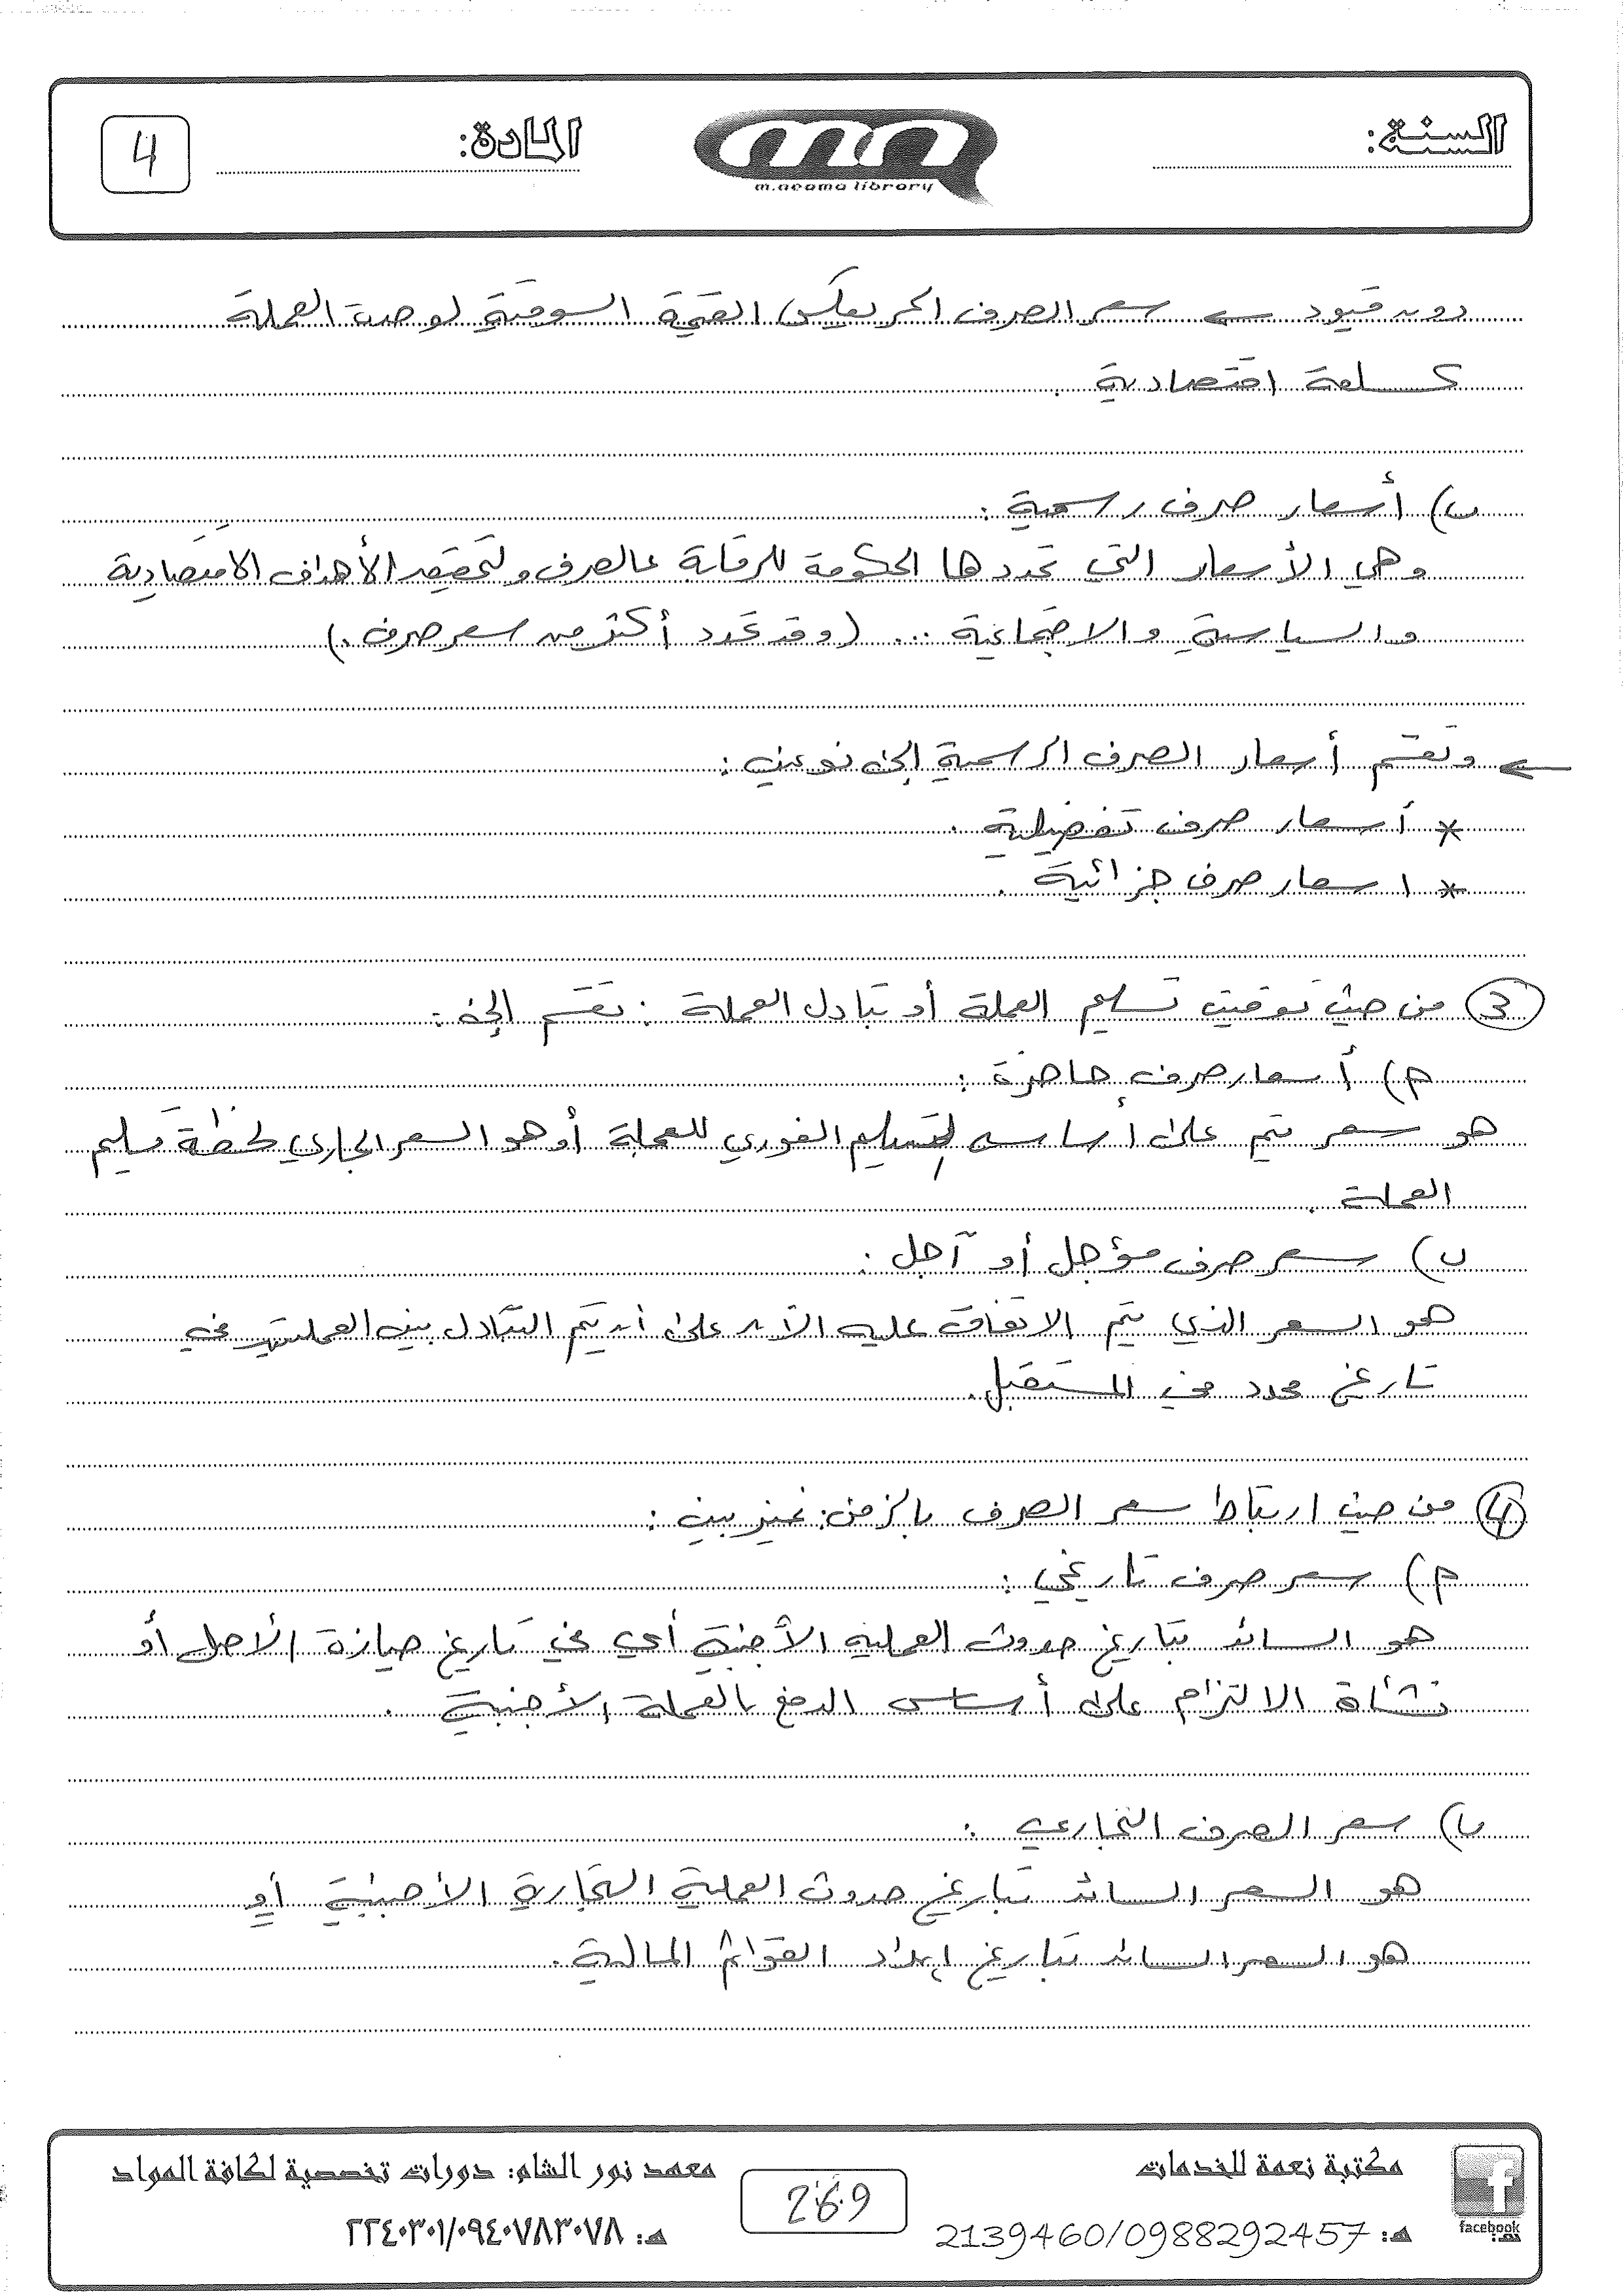 السنة:
m.neama library
المادة:
4
دون قيود ← سعر الصرف الحر يعكس القيمة السوقية لوحدة العملة
كسلعة اقتصادية .
ب) أسعار صرف رسمية :
وهي الأسعار التي تحددها الحكومة للرقابة عالصرف ولتحقيق الأهداف الاقتصادية
والسياسية والاجتماعية ... (وقد تحدد أكثر من سعر صرف .)
← وتقسم أسعار الصرف الرسمية إلى نوعين :
* أسعار صرف تفضيلية .
* اسعار صرف جزائية .
3 من حيث توقيت تسليم العملة أو تبادل العملة : تقسم إلى :
م) أسعار صرف حاضرة :
هو سعر يتم على أساسه التسليم الفوري للعملة أو هو السعر الجاري لحظة تسليم
العملة .
ب) سعر صرف مؤجل أو آجل :
هو السعر الذي يتم الاتفاق عليه الآن على أن يتم التبادل بين العملتين في
تاريخ محدد في المستقبل.
4 من حيث ارتباط سعر الصرف بالزمن: نميز بين :
م) سعر صرف تاريخي :
هو السائد بتاريخ حدوث العملية الأجنبية أي في تاريخ حيازة الأصل أو
نشأة الالتزام على أساس الدفع بالعملة الأجنبية .
ب) سعر الصرف التجاري :
هو السعر السائد بتاريخ حدوث العملية التجارية الأجنبية أو
هو السعر السائد بتاريخ إعداد القوائم المالية .
مكتبة نعمة للخدمات
هـ: 2139460/0988292457
facebook
269
معهد نور الشام: دورات تخصصية لكافة المواد
هـ: ٢٢٤٠٣٠١/٠٩٤٠٧٨٣٠٧٨